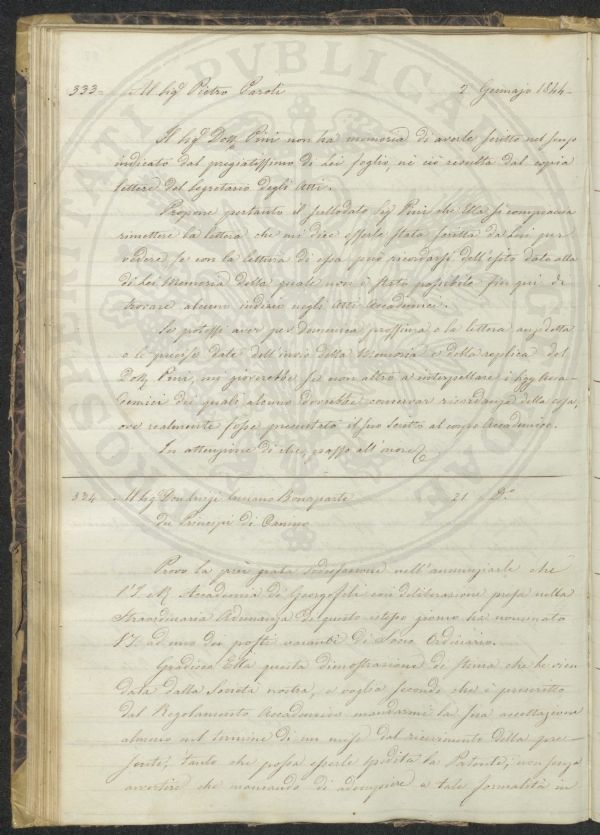 333= Al Sig.r Pietro Paroli 2 Gennajo 1844
Il Sig.r Dott. Pini non ha memoria di averle scritto nel senso
indicato dal pregiatissimo di Lei foglio, nè ciò resulta dal copia
lettere del Segretario degli Atti.
Propone pertanto il sullodato Sig. Pini che Ella si compiaccia
rimettere la lettera che mi dice esserle stata scritta da Lui per
vedere se con la lettura di essa può ricordarsi dell'esito dato alla
di Lei Memoria della quale non è stato possibile fin qui di
trovare alcuno indizio negli Atti Accademici.
Se potessi aver per domenica prossima o la lettera anzidetta
o le precise date dell'invio della Memoria e della replica del
Dott. Pini, mi gioverebbe se non altro a interpellare i Sigg. Acca-
demici dei quali alcuno dovrebbe conservar ricordanza della cosa,
ove realmente fosse presentato il suo scritto al corpo Accademico.
In attenzione di che, passo all'onore
334 Al Sig. Don Luigi Luciano Bonaparte 21 D.o
dei Principi di Canino
Provo la più grata sodisfazione nell'annunziarle che
l'I. e R. Accademia de' Georgofili con deliberazione presa nella
Straordinaria Adunanza di questo istesso giorno ha nominato
V. ad uno dei posti vacanti di Socio Ordinario.
Gradisca Ella questa dimostrazione di stima che le vien
data dalla Società nostra, e voglia secondo che è prescritto
dal Regolamento Accademico mandarmi la sua accettazione
almeno nel termine di un mese dal ricevimento della pre-
sente, tanto che possa esserle spedita la Patente, non senza
avvertire che mancando di adempire a tale formalità in